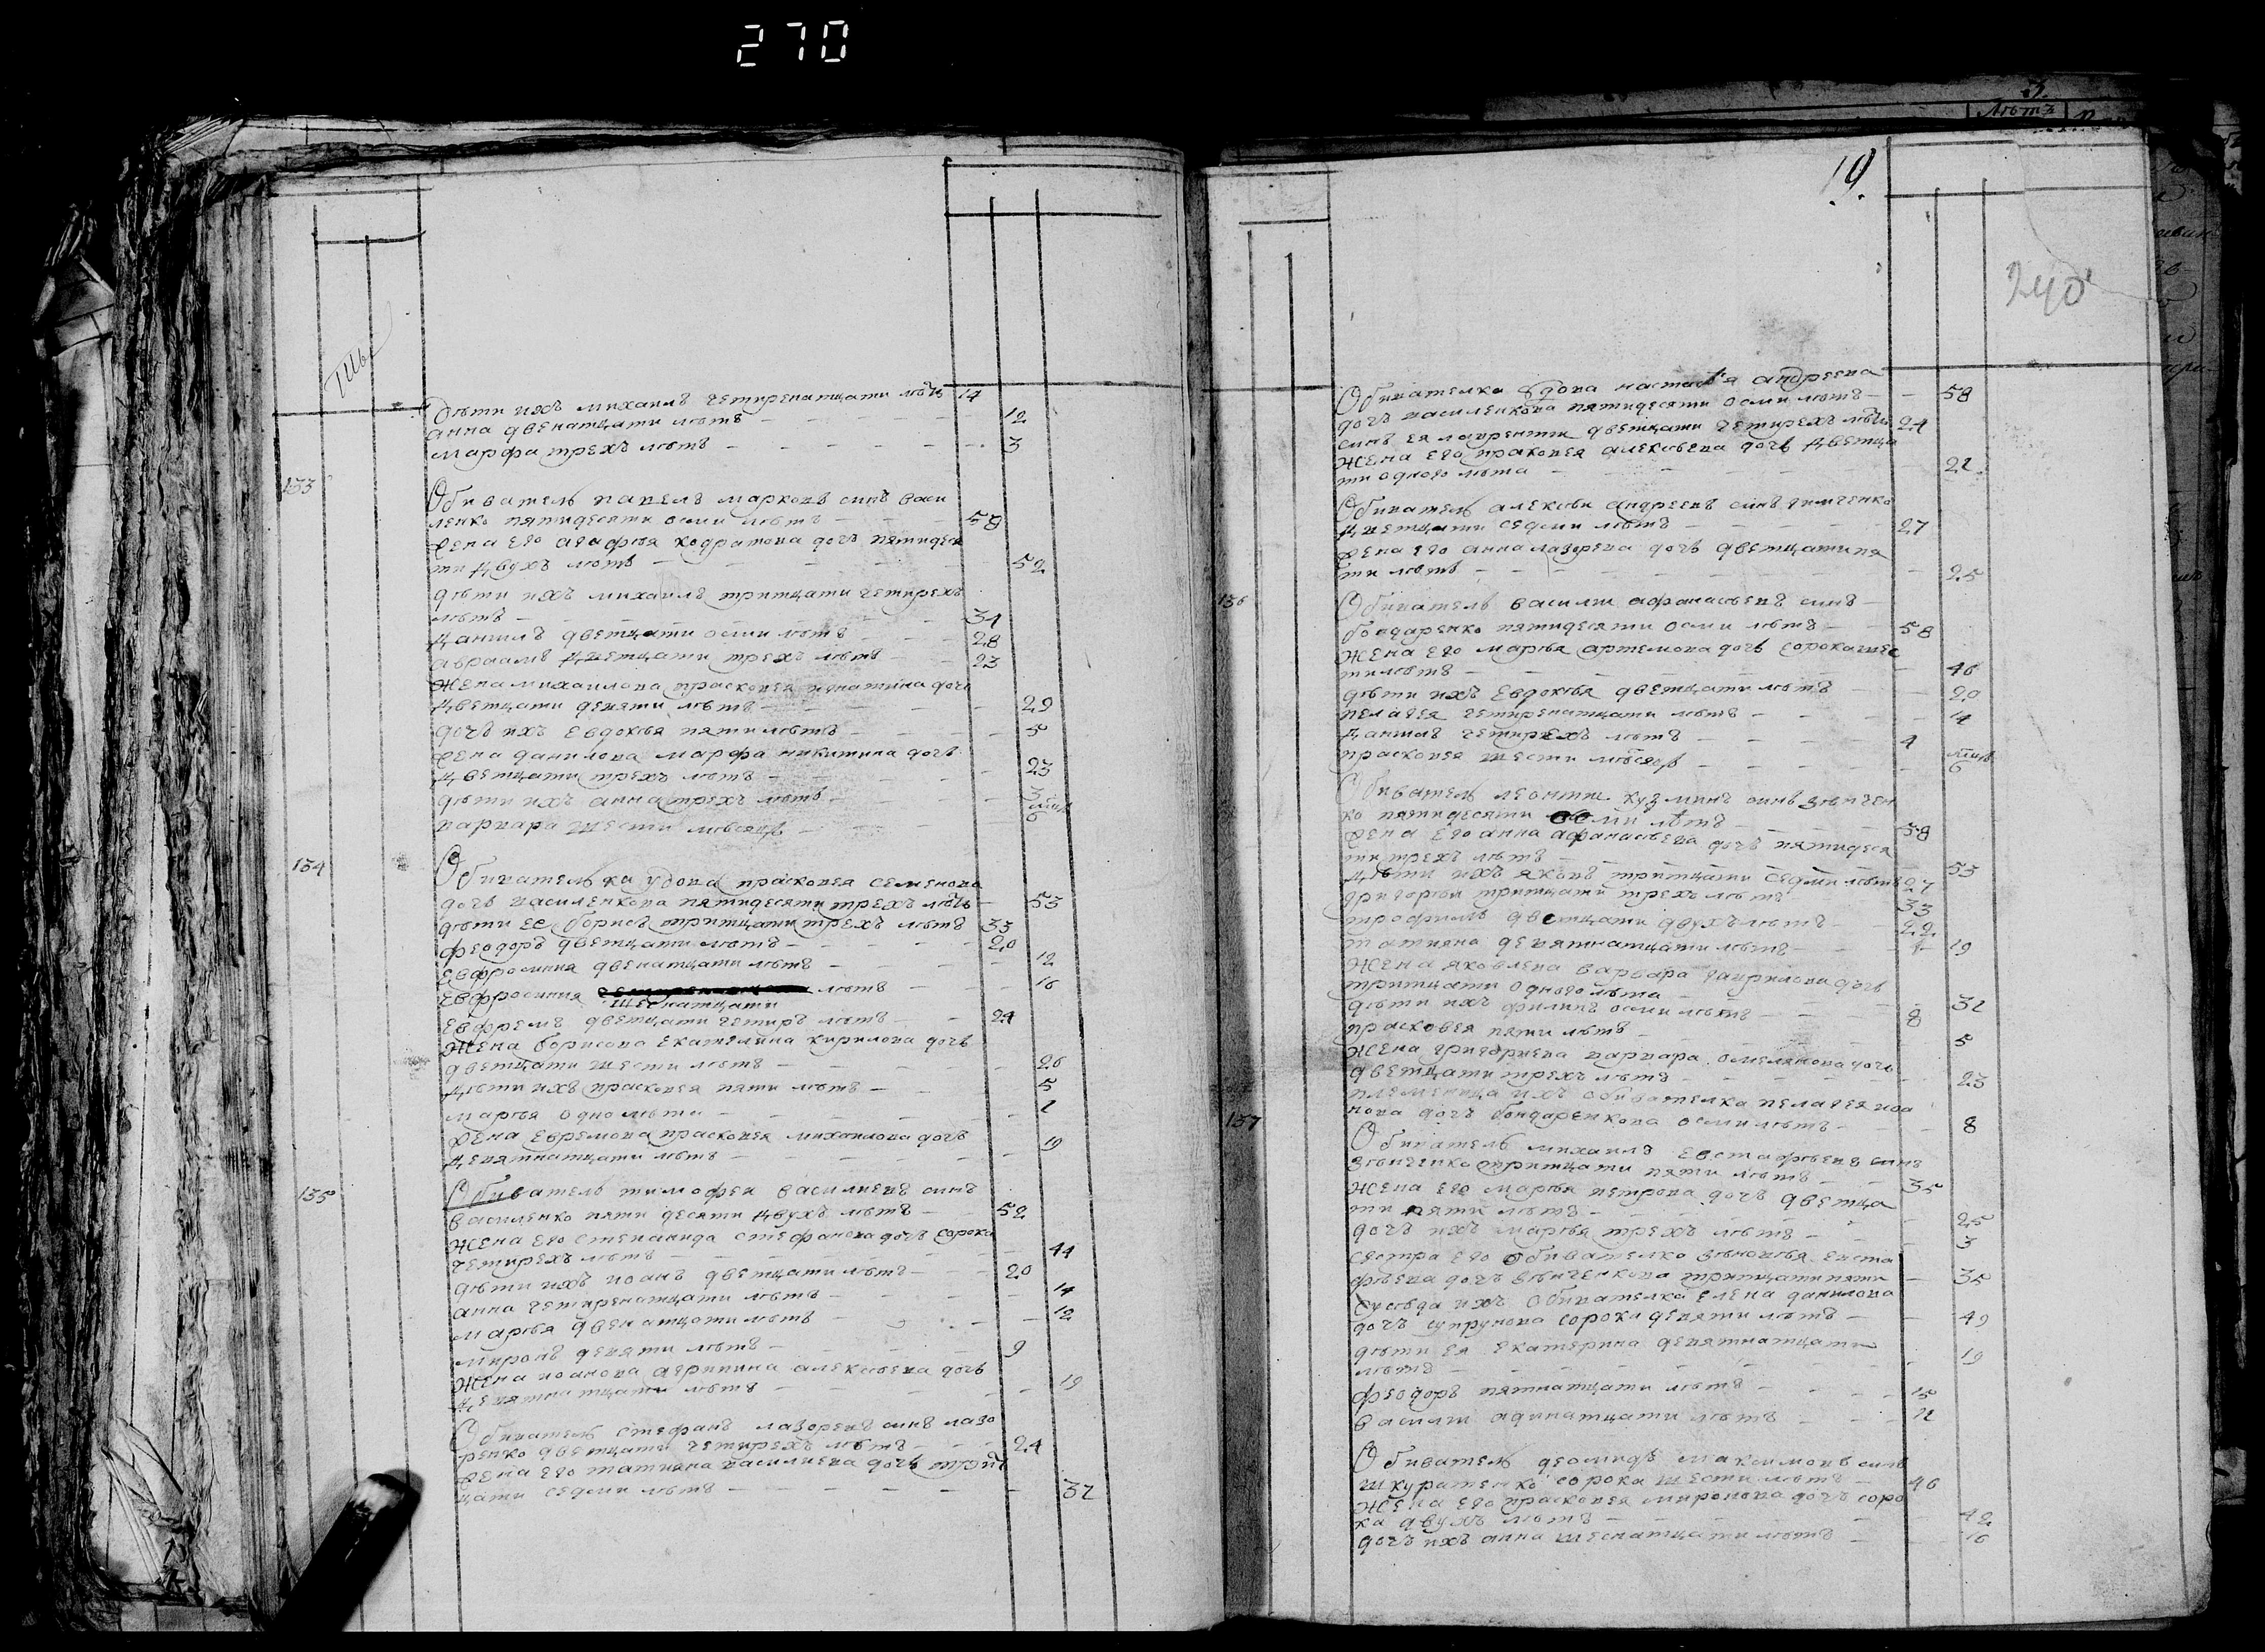 270
Дѣти ихъ михаилъ четиренатцати лѣтъ 14
анна двенатцати лѣтъ 12
марфа трехъ лѣтъ 3
133
Обиватель павелъ марковъ синъ васи
ленко пятидесяти осми лѣтъ 58
жена его агафия кодратова дочь пятидеся
ти двухъ лѣтъ 52
дѣти ихъ михаилъ тритцати четирехъ
лѣтъ 34
данилъ дветцати осми лѣтъ 28
авраамъ дветцати трехъ лѣтъ 23
жена михаилова прасковея игнатина дочь
дветцати девяти лѣтъ 29
дочь ихъ евдокия пяти лѣтъ 5
жена данилова марфа никитина дочь
дветцати трехъ лѣтъ 23
дѣти ихъ анна трехъ лѣтъ 3
варвара шести мѣсяцъ 6
134
Обивателька удова прасковея семенова
дочь василенкова пятидесяти трехъ лѣтъ 53
дѣти ее борисъ тритцати трехъ лѣтъ 33
феодоръ дветцати лѣтъ 20
евфросиния двенатцати лѣтъ 12
евфросиния лѣтъ 16
шеснатцати
евфремъ дветцати четиръ лѣтъ 24
жена борисова екатерина кирилова дочь
дветцати шести лѣтъ 26
дѣти ихъ прасковея пяти лѣтъ 5
мария одно лѣта 1
жена евремова прасковея михаилова дочь
девятнатцати лѣтъ 19
135
Обиватель тимофеи василиевъ синъ
василенко пяти десяти двухъ лѣтъ 52
жена его степанида стефанова дочь сорока
четирехъ лѣтъ 44
дѣти ихъ иоанъ дветцати лѣтъ 20
анна четиренатцати лѣтъ 14
мария двенатцати лѣтъ 12
миронъ девяти лѣтъ 9
жена иоанова агрипина алексѣева дочь
девятнатцати лѣтъ 19
Обиватель стефанъ лазоревъ синъ лазо
ренко дветцати четирехъ лѣтъ 24
жена его татияна василиева дочь трит
цати седми лѣтъ 37
19.
240
Обивателка вдова настасия андреева
дочь василенкова пятидесяти осми лѣтъ 58
синъ ея лаврентии дветцати четирехъ лѣтъ 24
жена его прасковея алексѣева дочь дветца
ти одного лѣта 21
Обиватель алексѣи андреевъ синъ тимченко
дветцати седми лѣтъ 27
жена его анна лазорева дочь дветцати пя
ти лѣтъ 25
136
Обиватель василии афанасиевъ синъ
бондаренко пятидесяти осми лѣтъ 58
жена его мария артемова дочь сорока шес
ти лѣтъ 46
дѣти ихъ евдокия дветцати лѣтъ 20
пелагея четиренатцати лѣтъ 14
данилъ четирехъ лѣтъ 4
прасковея шести мѣсяцъ 6
Обиватель леонтии кузминъ синъ зѣнчен
ко пятидесяти осми лѣтъ 58
жена его анна афанасиева дочь пятидеся
ти трехъ лѣтъ 53
дѣти ихъ яковъ тритцати седми лѣтъ 37
григории тритцати трехъ лѣтъ 33
трофимъ дветцати двухъ лѣтъ 22
татияна девятнатцати лѣтъ 19
жена яковлева варвара гаврилова дочь
тритцати одного лѣта 31
дѣти ихъ филипъ осми лѣтъ 8
прасковея пяти лѣтъ 5
жена григориева варвара омелянова дочь
дветцати трехъ лѣтъ 23
племеница ихъ обивателка пелагея иоа
нова дочь бондаренкова осми лѣтъ 8
137
Обиватель михаилъ евстафиевъ синъ
зѣнченко тритцати пяти лѣтъ 35
жена его мария петрова дочь дветца
ти пяти лѣтъ 25
дочь ихъ мария трехъ лѣтъ 3
сестра его обивателка зѣновия евста
фиева дочь зѣнченкова тритцати пяти 35
сусѣда ихъ обивателка елена данилова
дочь супрунова сорока девяти лѣтъ 49
дѣти ея екатерина девятнатцати
лѣтъ 19
феодоръ пятнатцати лѣтъ 15
василии адинатцати лѣтъ 11
Обиватель деомидъ максимовъ синъ
шкуратенко сорока шести лѣтъ 46
жена его прасковея миронова дочь соро
ка двухъ лѣтъ 42
дочь ихъ анна шеснатцати лѣтъ 16